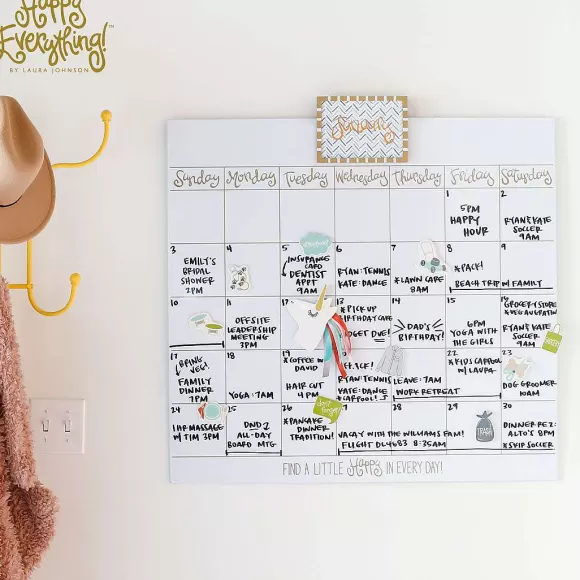 Happy
Everything!™
BY LAURA JOHNSON
Sunday Monday Tuesday Wednesday Thursday Friday Saturday
1
5PM
HAPPY
HOUR
2
RYAN & KATE
SOCCER
9AM
3
EMILY'S
BRIDAL
SHOWER
2PM
4
5
INSURANCE
CARD
DENTIST
APPT
9AM
6
RYAN: TENNIS
KATE: DANCE
7
*LAWN CARE
8AM
8
*PACK!
BEACH TRIP W/ FAMILY
9
10
11
OFFSITE
LEADERSHIP
MEETING
3PM
12
13
*PICK UP
BIRTHDAY CAKE
BUDGET DUE!
14
DAD'S
BIRTHDAY!
15
6PM
YOGA WITH
THE GIRLS
16
GROCERY STORE
*VEG AU GRATIN
RYAN & KATE
SOCCER
9AM
17
BRING
VEG!
FAMILY
DINNER
7PM
18
YOGA: 7AM
19
*COFFEE W/
DAVID
HAIR CUT
4PM
RYAN: TENNIS
KATE: DANCE
*CARPOOL!
LEAVE: 7AM
WORK RETREAT
22
*KIDS CARPOOL
W/ LAURA
23
DOG GROOMER
10AM
24
1 HR MASSAGE
W/ TIM 3PM
25
DND
ALL-DAY
BOARD MTG.
26
*PANCAKE
DINNER
TRADITION!
VACAY WITH THE WILLIAMS FAM!
FLIGHT DL4683 8:35AM
28
29
TRASH
30
DINNER REZ:
ALTO'S 8PM
*SKIP SOCCER
FIND A LITTLE Happy IN EVERY DAY!